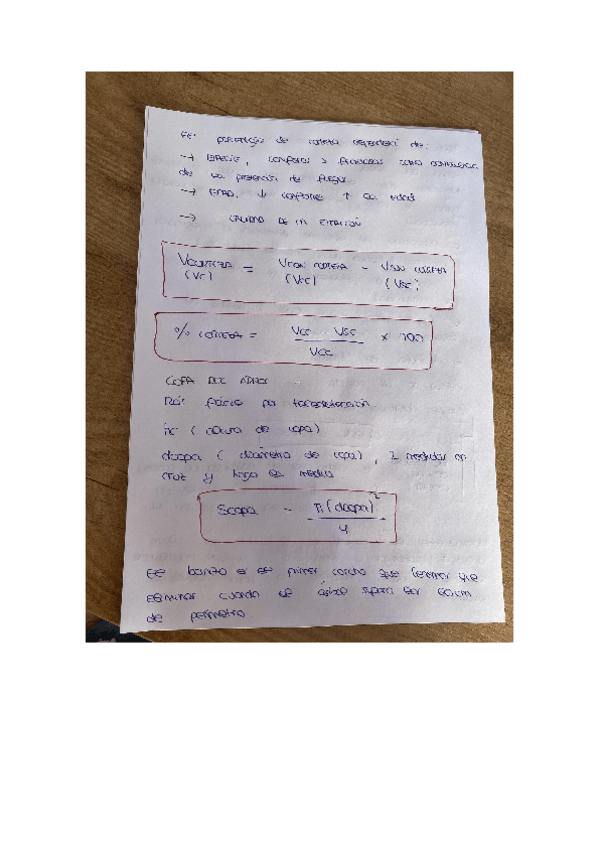 El porcentaje de corteza dependerá de:
→ ESPECIE, coníferas > frondosas como consecuencia
de la presencia de fuego
→ EDAD, ↓ conforme ↑ la edad
→ CALIDAD DE LA ESTACIÓN
VCORTEZA (VC) = VCON CORTEZA (VCC) - VSIN CORTEZA (VSC)
% CORTEZA = VCC - VSC / VCC × 100
COPA DEL ÁRBOL
Más fácil por teledetección
hc (altura de copa)
dcopa (diámetro de copa), 2 medidas en
cruz y hago la media
Scopa = π(dcopa)² / 4
El bornizo es el primer corcho que tenemos que
eliminar cuando el árbol supera los 60 cm
de perímetro